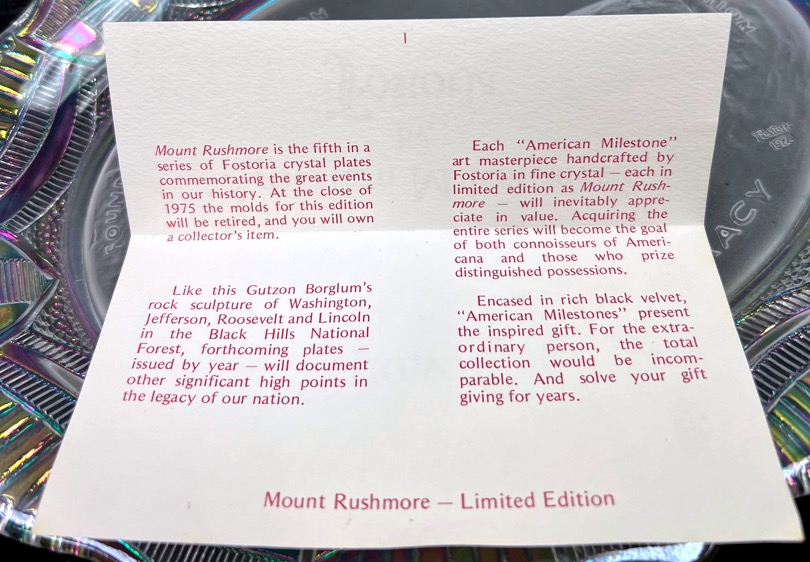 Mount Rushmore is the fifth in a
series of Fostoria crystal plates
commemorating the great events
in our history. At the close of
1975 the molds for this edition
will be retired, and you will own
a collector's item.
Like this Gutzon Borglum's
rock sculpture of Washington,
Jefferson, Roosevelt and Lincoln
in the Black Hills National
Forest, forthcoming plates —
issued by year — will document
other significant high points in
the legacy of our nation.
Each "American Milestone"
art masterpiece handcrafted by
Fostoria in fine crystal — each in
limited edition as Mount Rush-
more — will inevitably appre-
ciate in value. Acquiring the
entire series will become the goal
of both connoisseurs of Ameri-
cana and those who prize
distinguished possessions.
Encased in rich black velvet,
"American Milestones" present
the inspired gift. For the extra-
ordinary person, the total
collection would be incom-
parable. And solve your gift
giving for years.
Mount Rushmore — Limited Edition
Fostoria